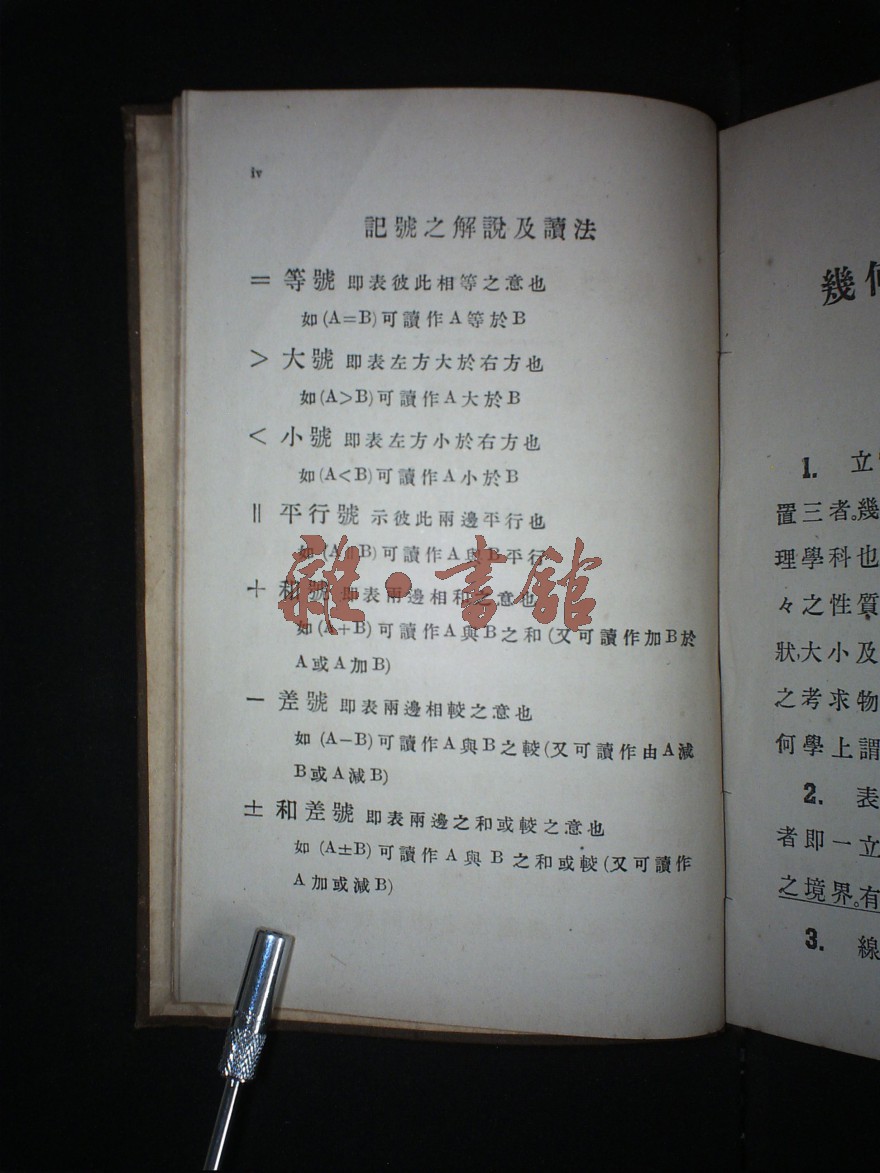 iv
記號之解說及讀法
= 等號 即表彼此相等之意也
如(A=B)可讀作A等於B
> 大號 即表左方大於右方也
如(A>B)可讀作A大於B
< 小號 即表左方小於右方也
如(A<B)可讀作A小於B
∥ 平行號 示彼此兩邊平行也
如(A∥B)可讀作A與B平行
+ 和號 即表兩邊相和之意也
如(A+B)可讀作A與B之和(又可讀作加B於
A或A加B)
− 差號 即表兩邊相較之意也
如(A−B)可讀作A與B之較(又可讀作由A減
B或A減B)
± 和差號 即表兩邊之和或較之意也
如(A±B)可讀作A與B之和或較(又可讀作
A加或減B)
雜·書館
幾何
1. 立
置三者。幾
理學科也
々之性質
狀,大小及
之考求物
何學上謂
2. 表
者即一立
之境界。有
3. 線